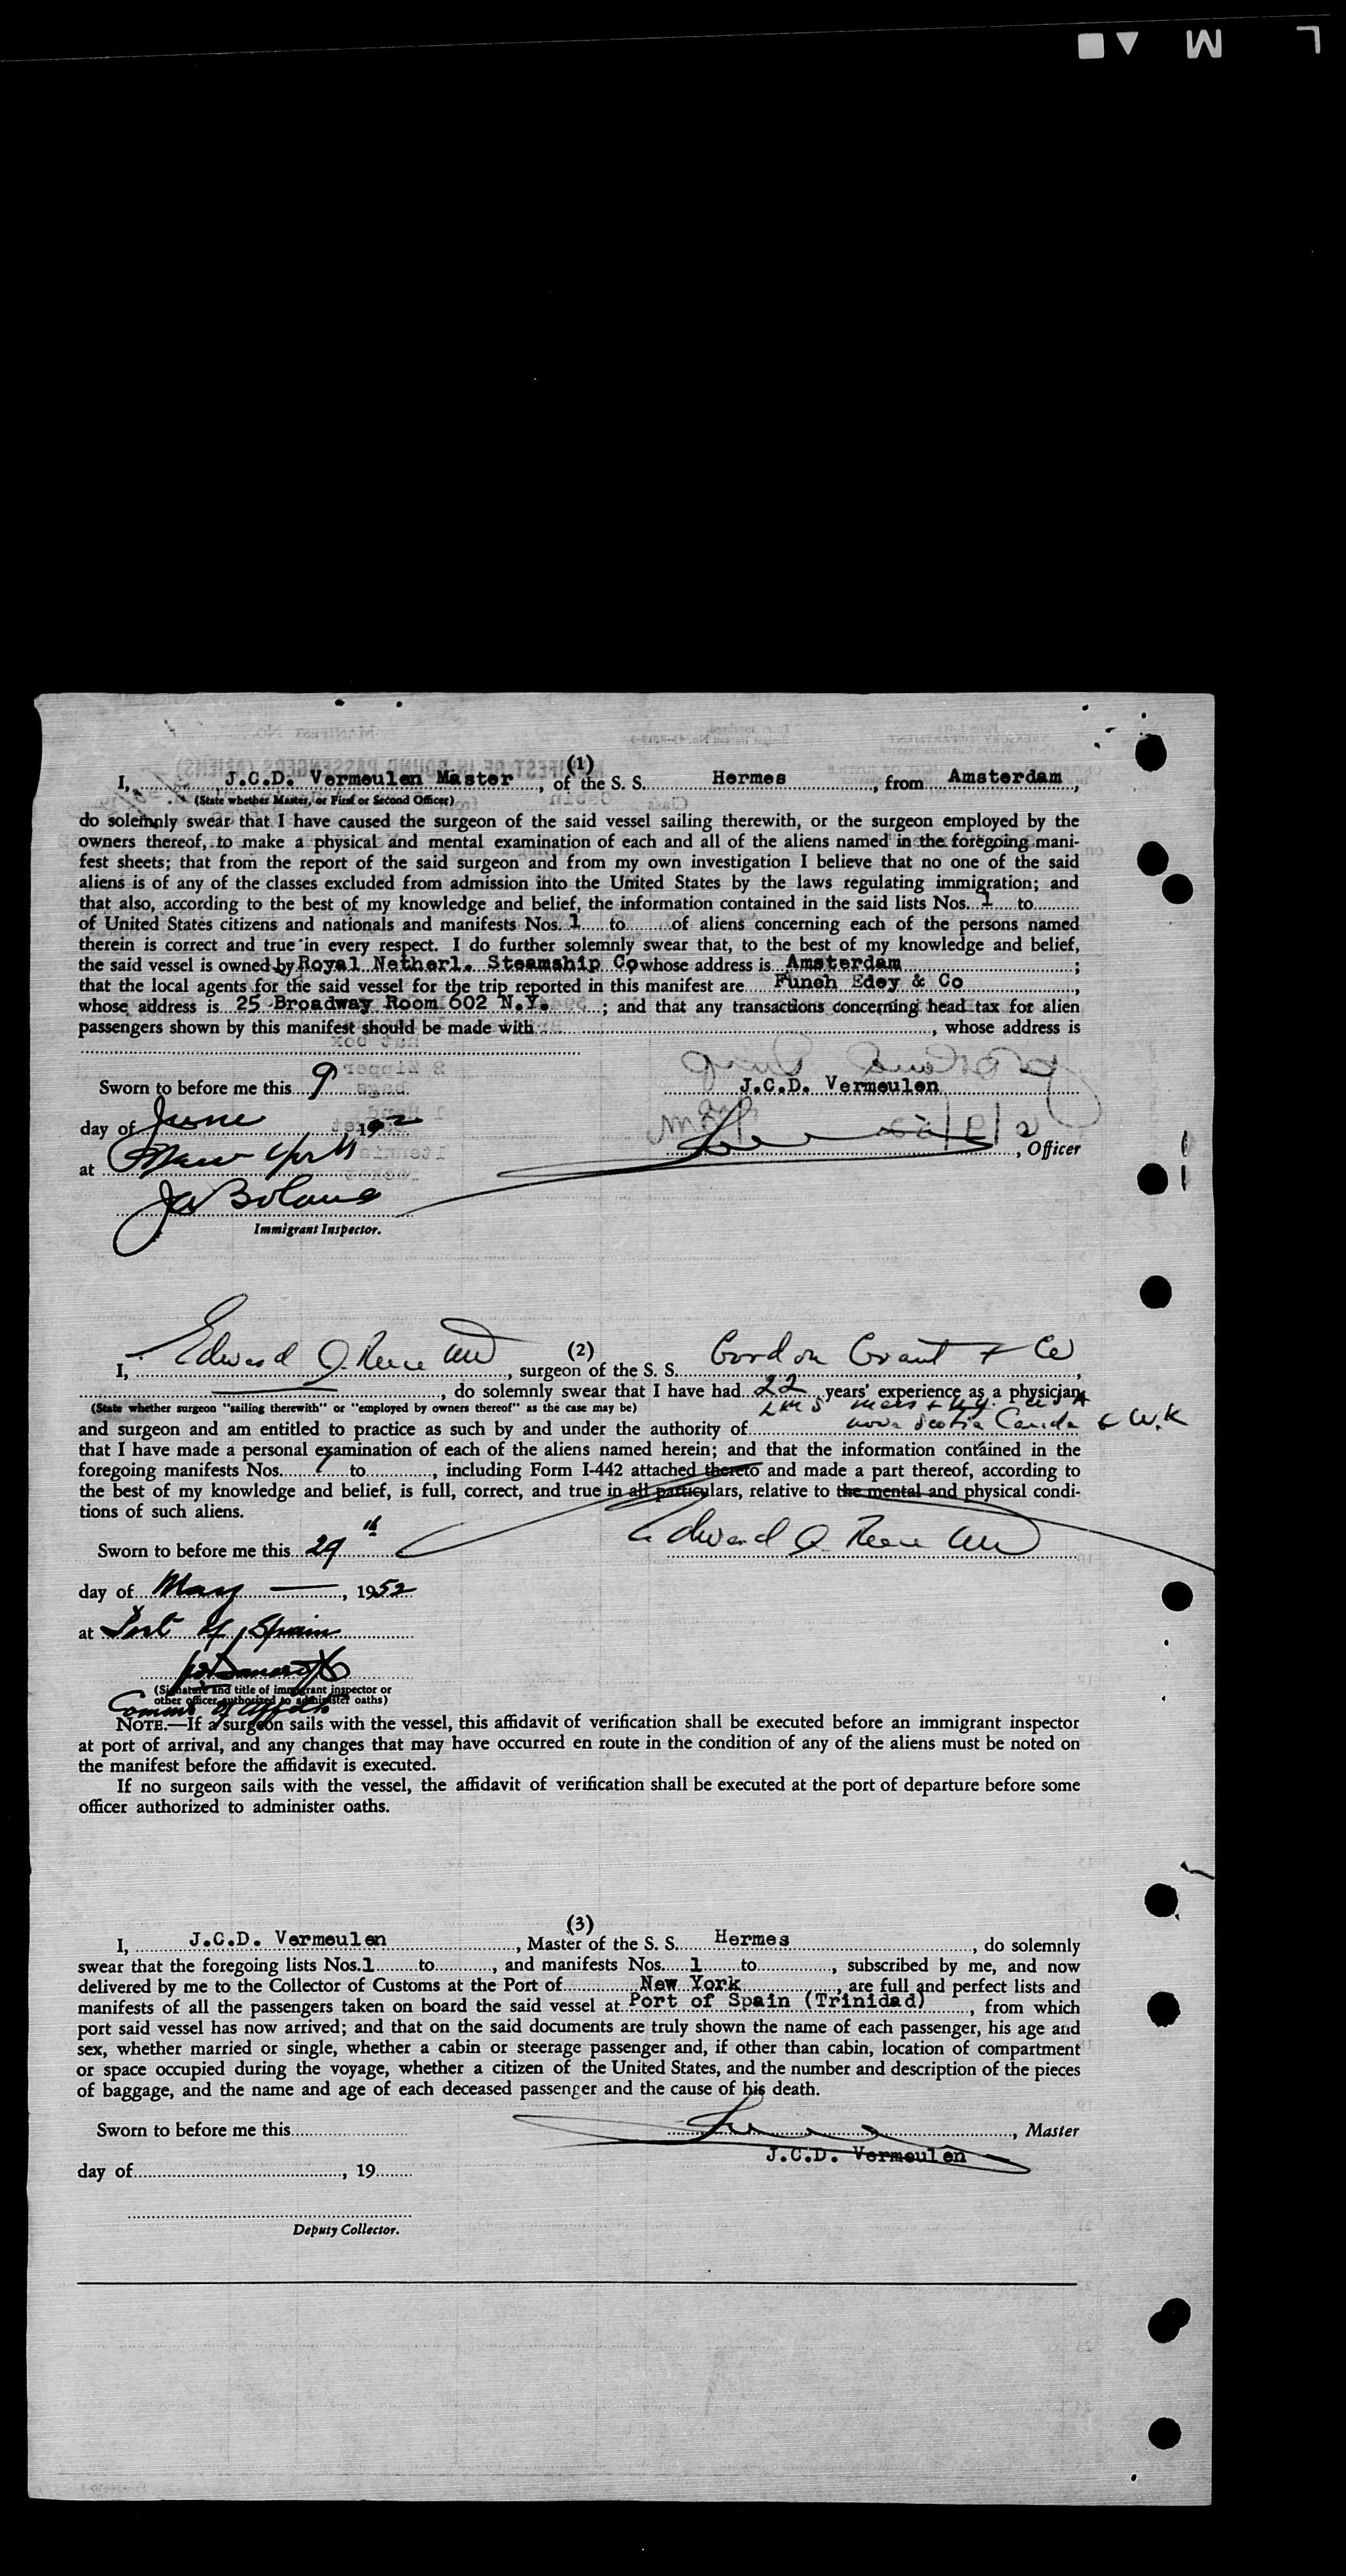 L M
(1)
I, J.C.D. Vermeulen Master, of the S. S. Hermes, from Amsterdam,
(State whether Master, or First or Second Officer)
do solemnly swear that I have caused the surgeon of the said vessel sailing therewith, or the surgeon employed by the
owners thereof, to make a physical and mental examination of each and all of the aliens named in the foregoing mani-
fest sheets; that from the report of the said surgeon and from my own investigation I believe that no one of the said
aliens is of any of the classes excluded from admission into the United States by the laws regulating immigration; and
that also, according to the best of my knowledge and belief, the information contained in the said lists Nos. 1 to
of United States citizens and nationals and manifests Nos. 1 to of aliens concerning each of the persons named
therein is correct and true in every respect. I do further solemnly swear that, to the best of my knowledge and belief,
the said vessel is owned by Royal Netherl. Steamship Co whose address is Amsterdam ;
that the local agents for the said vessel for the trip reported in this manifest are Funch Edey & Co ,
whose address is 25 Broadway Room 602 N.Y. ; and that any transactions concerning head tax for alien
passengers shown by this manifest should be made with , whose address is
Sworn to before me this 9
J.C.D. Vermeulen
day of June , 1952
, Officer
at New York
Immigrant Inspector.
(2)
I, Edward Q. Reece MD , surgeon of the S. S. Gordon Grant & Co ,
, do solemnly swear that I have had 22 years' experience as a physician
(State whether surgeon "sailing therewith" or "employed by owners thereof" as the case may be)
and surgeon and am entitled to practice as such by and under the authority of Nova Scotia Canada & W.K
that I have made a personal examination of each of the aliens named herein; and that the information contained in the
foregoing manifests Nos. 1 to , including Form I-442 attached thereto and made a part thereof, according to
the best of my knowledge and belief, is full, correct, and true in all particulars, relative to the mental and physical condi-
tions of such aliens.
Sworn to before me this 29th
Edward Q. Reece MD
day of May , 1952
at Port of Spain
(Signature and title of immigrant inspector or
other officer authorized to administer oaths)
NOTE.—If a surgeon sails with the vessel, this affidavit of verification shall be executed before an immigrant inspector
at port of arrival, and any changes that may have occurred en route in the condition of any of the aliens must be noted on
the manifest before the affidavit is executed.
If no surgeon sails with the vessel, the affidavit of verification shall be executed at the port of departure before some
officer authorized to administer oaths.
(3)
I, J.C.D. Vermeulen , Master of the S. S. Hermes , do solemnly
swear that the foregoing lists Nos. 1 to , and manifests Nos. 1 to , subscribed by me, and now
delivered by me to the Collector of Customs at the Port of New York , are full and perfect lists and
manifests of all the passengers taken on board the said vessel at Port of Spain (Trinidad) , from which
port said vessel has now arrived; and that on the said documents are truly shown the name of each passenger, his age and
sex, whether married or single, whether a cabin or steerage passenger and, if other than cabin, location of compartment
or space occupied during the voyage, whether a citizen of the United States, and the number and description of the pieces
of baggage, and the name and age of each deceased passenger and the cause of his death.
Sworn to before me this
, Master
J.C.D. Vermeulen
day of , 19
Deputy Collector.